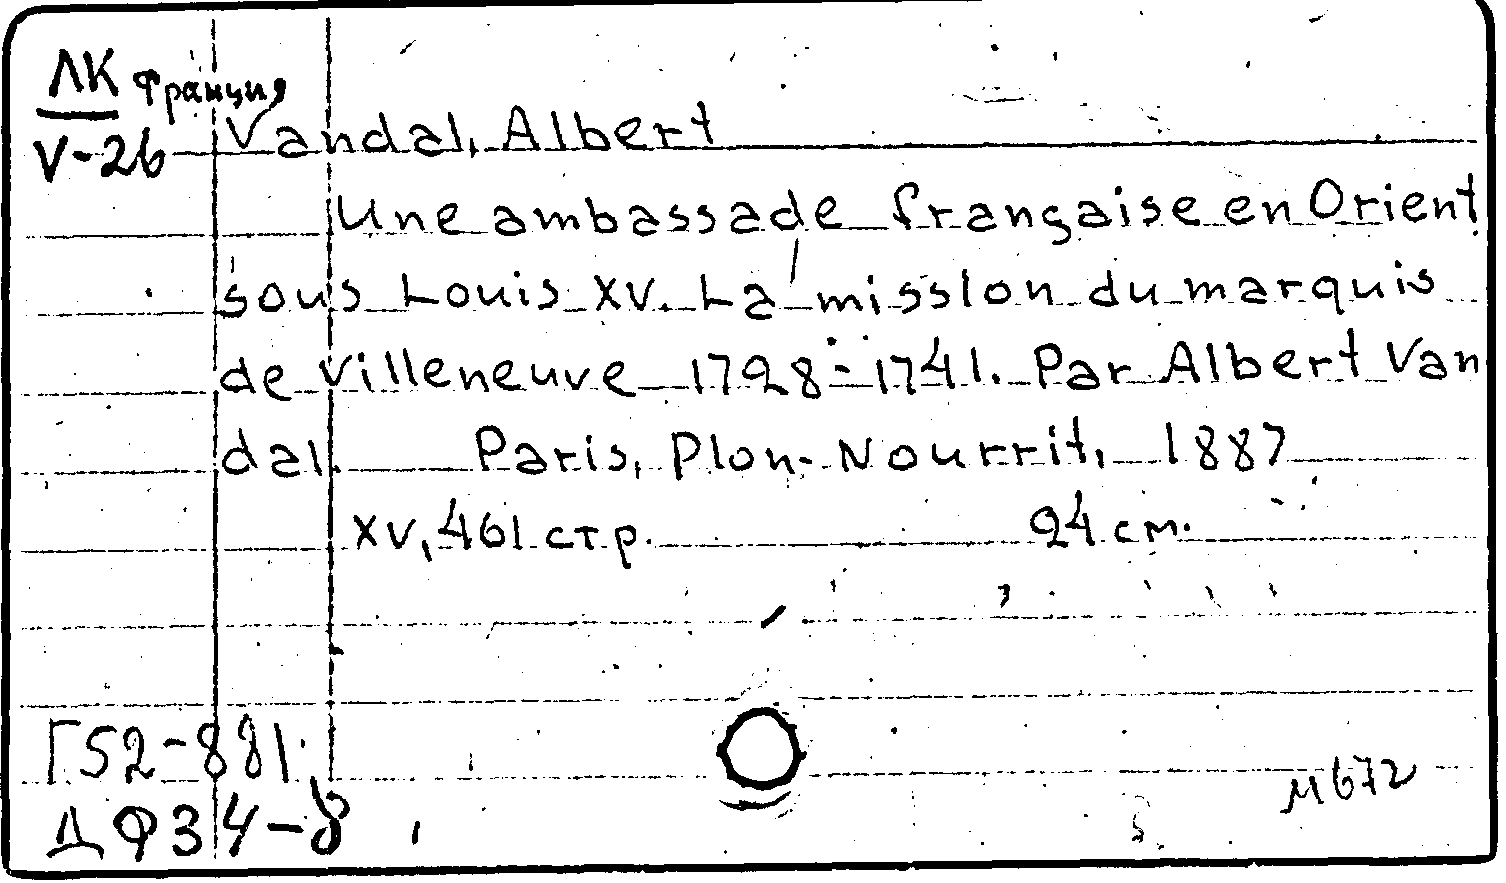 ЛК Франция
V-26 Vandal, Albert
Une ambassade française en Orient
sous Louis XV. La mission du marquis
de Villeneuve 1728-1741. Par Albert Van
dal. Paris, Plon-Nourrit, 1887
XV, 461 стр. 24 см.
Г52-881
ДФ34-8
М672